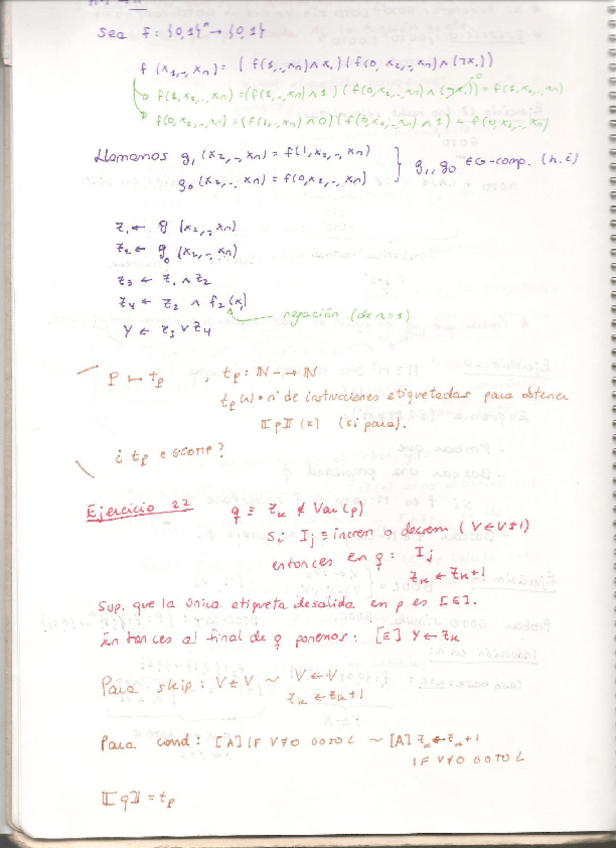 Sea f: {0,1}ⁿ → {0,1}
f(x₁,..,xₙ) = (f(1,..,xₙ)∧x₁) (f(0,x₂,..,xₙ)∧(¬x₁))
f(1,x₂,..,xₙ) = (f(1,..,xₙ)∧1) (f(0,x₂,..,xₙ)∧(¬x₁)⁰) = f(1,..,xₙ)
f(0,x₂,..,xₙ) = (f(1,..,xₙ)∧0) (f(0,x₂,..,xₙ)∧1) = f(0,x₂,..,xₙ)
Llamamos g₁(x₂,..,xₙ) = f(1,x₂,..,xₙ)
g₀(x₂,..,xₙ) = f(0,x₂,..,xₙ) } g₁,g₀ ∈ G-comp. (h.i)
z₁ ← g(x₂,..,xₙ)
z₂ ← g₀(x₂,..,xₙ)
z₃ ← z₁ ∧ z₂
z₄ ← z₂ ∧ f₂(x₁)
negación (de n=1)
Y ← z₃ ∨ z₄
P ↦ tₚ , tₚ: ℕ -→ ℕ
tₚ(x) = nº de instrucciones etiquetadas para obtener
⟦p⟧(x) (si para).
¿ tₚ ∈ GCOMP?
Ejercicio 22 q ≡ zₖ ∉ Var(p)
Si Iⱼ ≡ increm o decrem (V←V±1)
entonces en q: Iⱼ
zₖ ← zₖ+1
Sup. que la única etiqueta de salida en p es [E].
Entonces al final de q ponemos: [E] Y ← zₖ
Para skip: V←V ~ V←V
zₖ ← zₖ+1
Para cond: [A] IF V≠0 GOTO L ~ [A] zₖ ← zₖ+1
IF V≠0 GOTO L
⟦q⟧ = tₚ